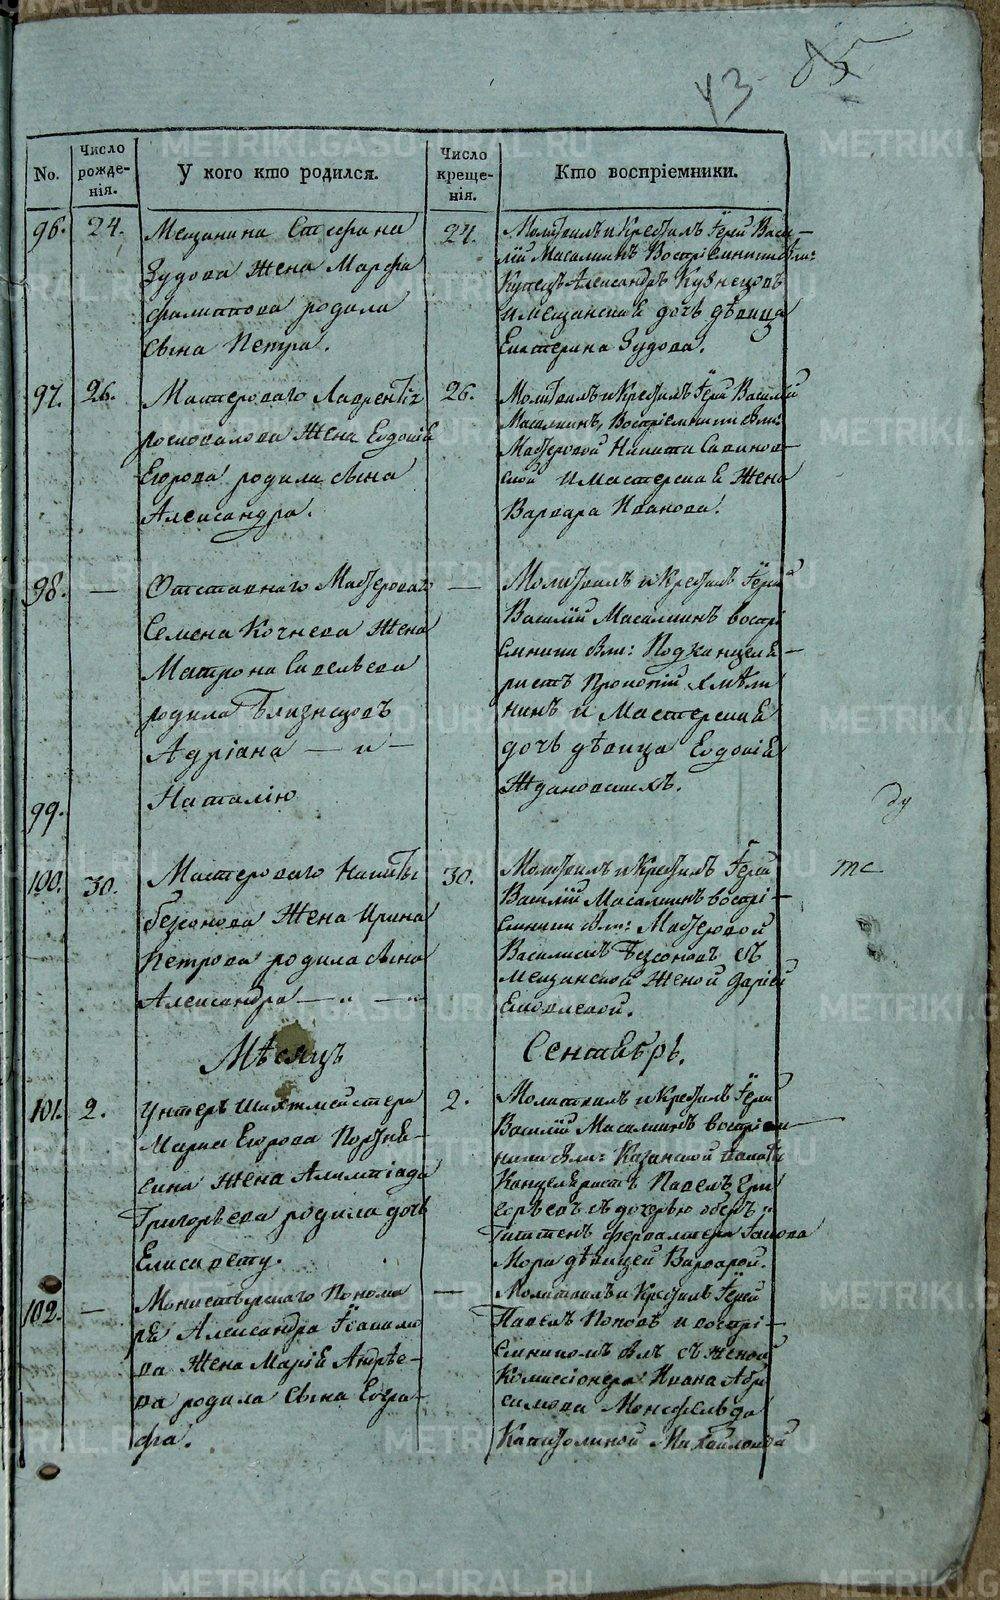 43 85
No.
Число рожде-нія.
У кого кто родился.
Число креще-нія.
Кто воспріемники.
96. 24.
Мещанина Стефана
Зудова жена Марфа
родила
сына Петра.
24.
Молитвилъ и Крестилъ Іерей Васи-
лій Масалкинъ Воспріемники были:
Купецъ Александръ Кузнецовъ
и мещанская дочь дѣвица
Екатерина Зудова.
97. 26.
Мастероваго Лаврентія
жена Евдокія
Егорова родила сына
Александра.
26.
Молитвилъ и Крестилъ Іерей Василій
Масалкинъ, Воспріемники были:
Мастеровой Никита
и мастерская жена
Варвара Иванова.
98. —
Отставнаго Мастероваго
Семена Кочнева жена
Матрона Савельева
родила близнецовъ
Адріана — и —
99.
Наталію
—
Молитвилъ и Крестилъ Іерей
Василій Масалкинъ воспрі
емники были: Подканцеля-
ристъ Прокопій Хмѣли
нинъ и Мастерская
дочь дѣвица Евдокія
Ждановскихъ.
ду
100. 30.
Мастероваго Никиты
безсонова жена Ирина
Петрова родила сына
Александра — „ — „
30.
Молитвилъ и Крестилъ Іерей
Василій Масалкинъ воспрі-
емники были: Мастеровой
Безсоновъ съ
мещанской женой Дарьей
Яковлевой.
тс
Мѣсяцъ Сентябрь.
101. 2.
Унтеръ Шихтмейстера
Марка Егорова
жена Алимпіада
Григорьева родила дочь
Елисавету.
2.
Молитвилъ и Крестилъ Іерей
Василій Масалкинъ воспріем-
ники были: Казанской палаты
Канцеляристъ Павелъ
съ дочерью оберъ „
гиттенъ фервалтера
дѣвицей Варварой.
102. —
Монастырскаго Понома
ря Александра
ва жена Марія Андрѣе-
ва родила сына Евгра-
фа.
—
Молитвилъ и Крестилъ Іерей
Павелъ Поповъ и воспрі-
емникомъ былъ съ женой
Комиссіонера Ивана Абра
симова
Капитолиной Михайловой
METRIKI.GASO-URAL.RU